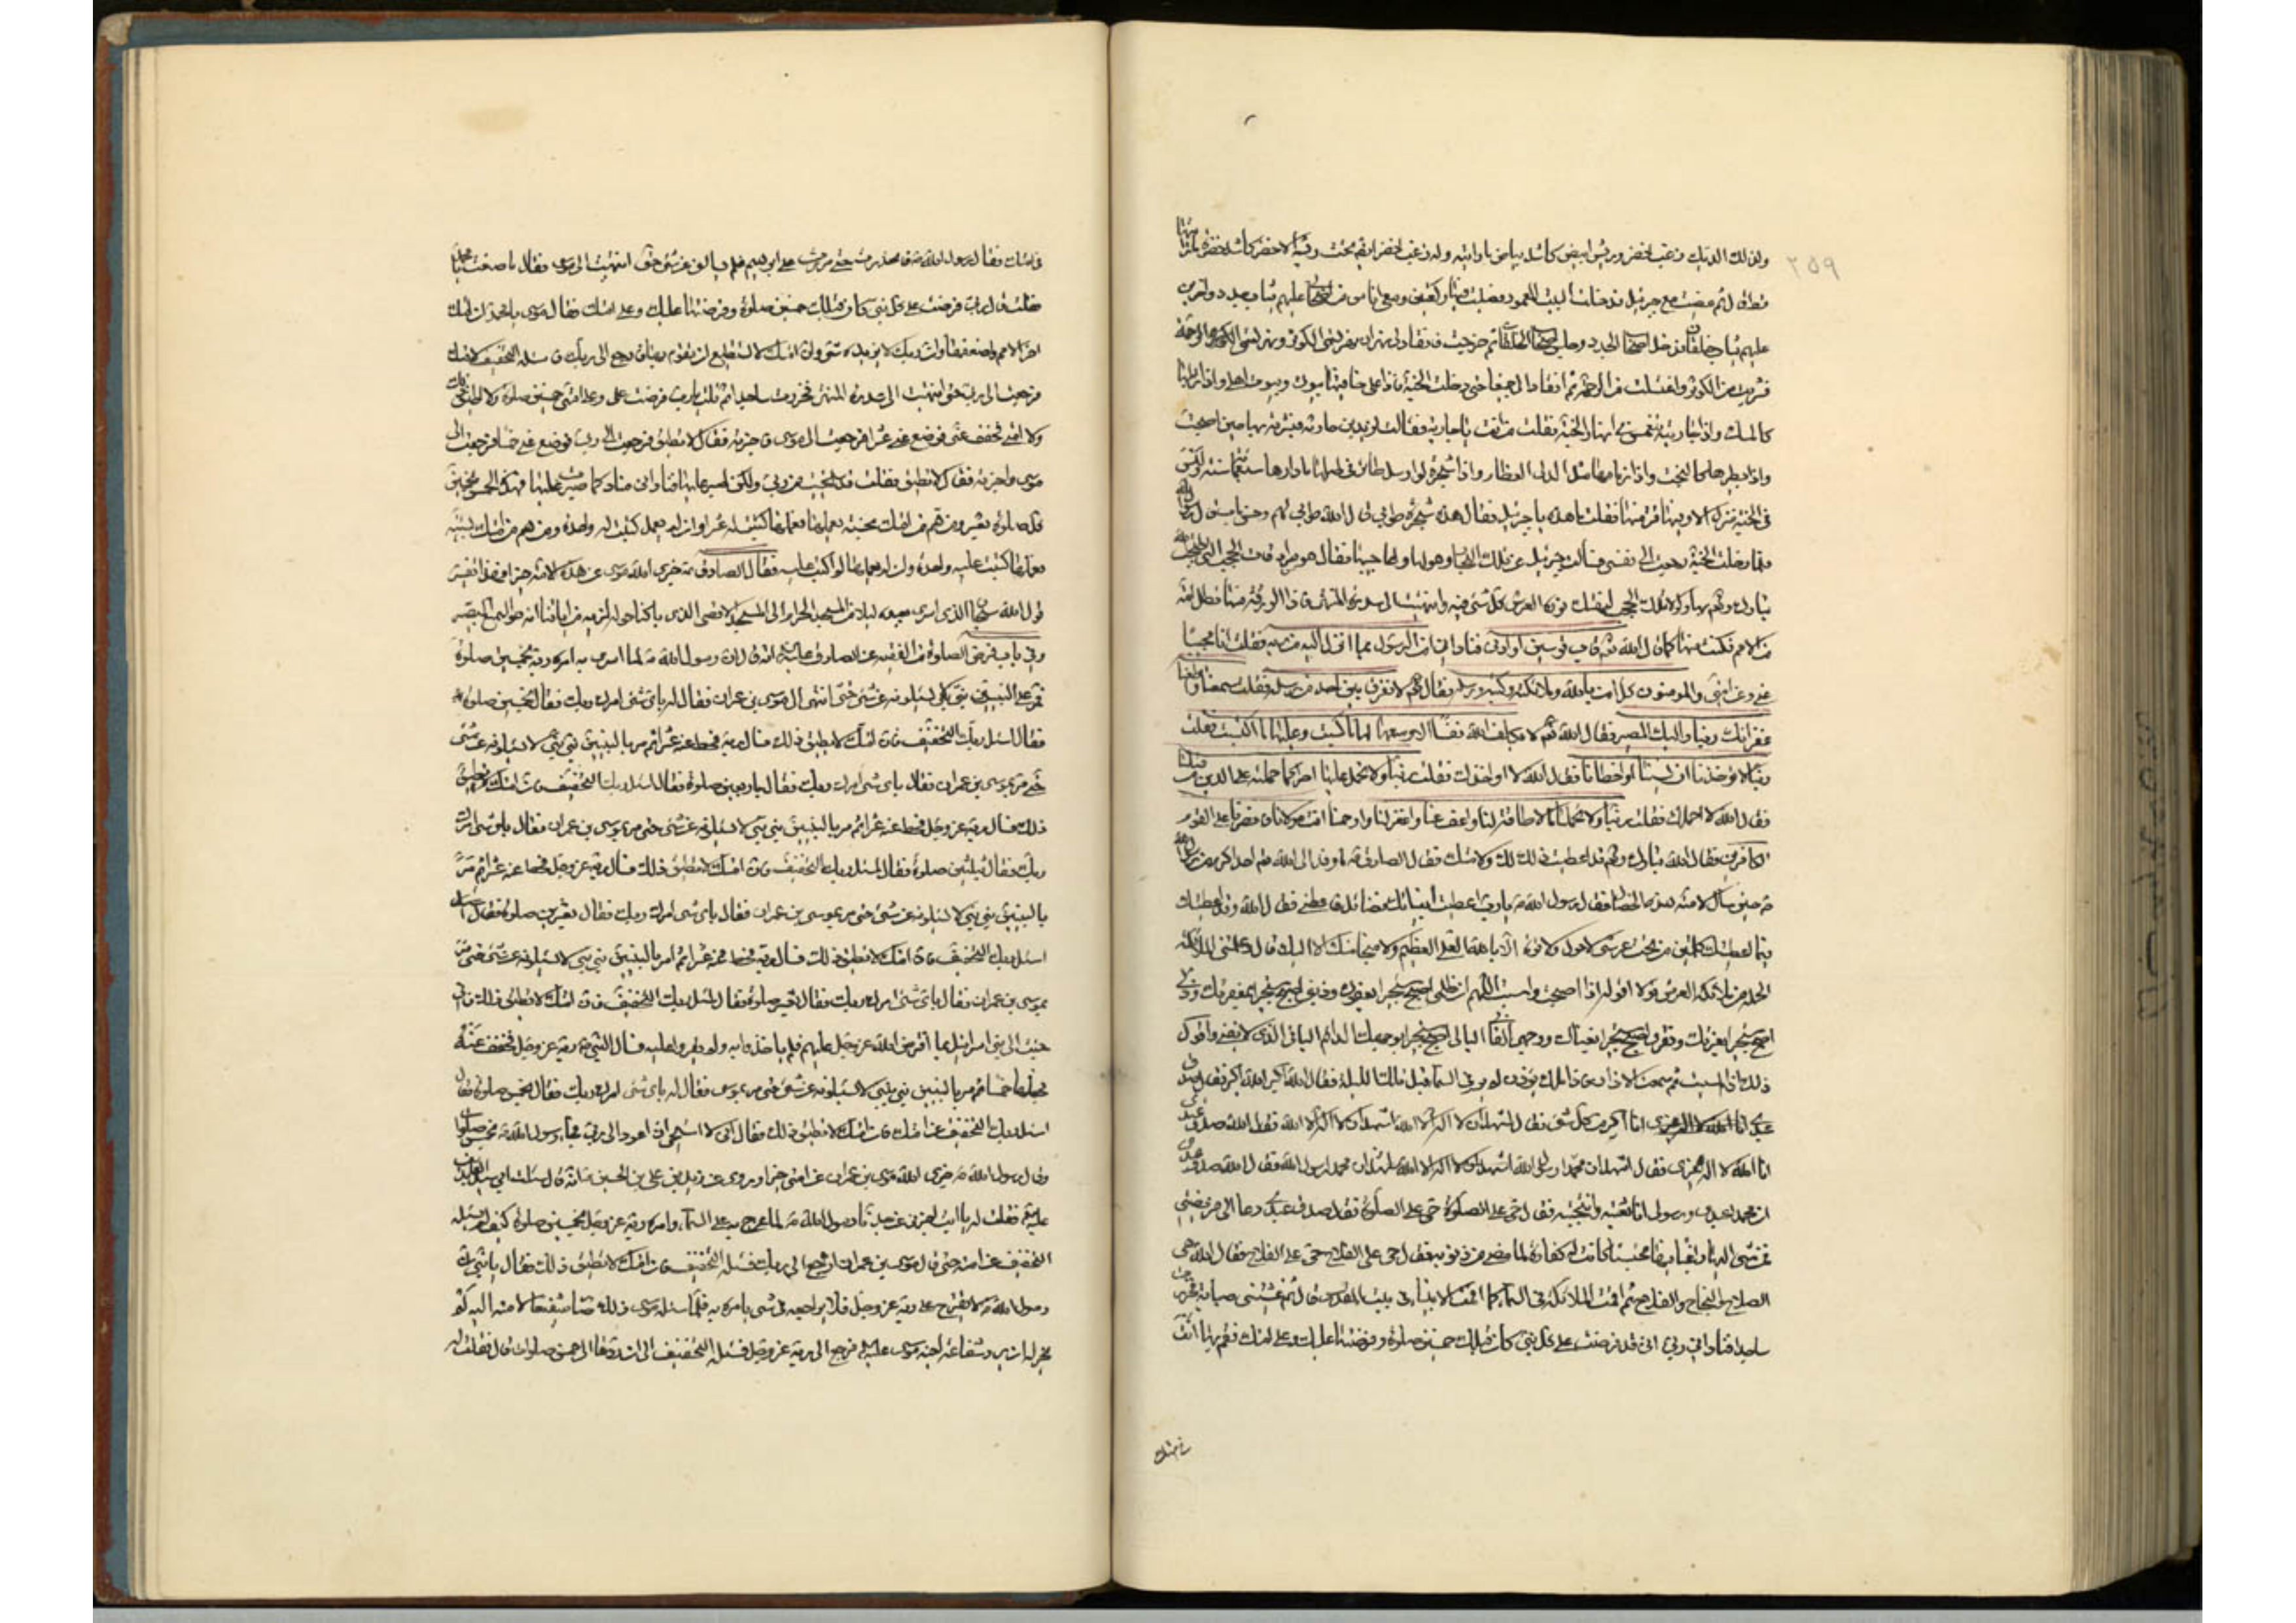 ولذلك الديك زغب اخضر وريش ابيض كاشد بياض ما رايته وله زغب اخضر ايضا تحت ريشه الابيض كاشد خضرة
قال ثم مضيت مع جبرئيل فدخلت البيت المعمور فصليت فيه ركعتين ومعى اناس من اصحابى عليهم ثياب جدد واخرين
عليهم ثياب خلقان فدخل اصحاب الجدد وحبس اصحاب الخلقان ثم خرجت فانقاد لى نهران نهر يسمى الكوثر ونهر يسمى الرحمة
فشربت من الكوثر واغتسلت من الرحمة ثم انقادا لى جميعا حتى دخلت الجنة فاذا على حافتيها بيوتى وبيوت اهلى واذا ترابها
كالمسك واذا جارية تنغمس فى انهار الجنة فقلت لمن انت يا جارية فقالت لزيد بن حارثة فبشرته بها حين اصبحت
واذا بطيرها كالبخت واذا رمانها مثل الدلى العظام واذا شجرة لو ارسل طائر فى اصلها ما دارها سبعمائة سنة وليس
فى الجنة منزل الا وفيها فرع منها فقلت ما هذه يا جبرئيل فقال هذه شجرة طوبى قال الله طوبى لهم وحسن ماب قال رسول الله
فلما دخلت الجنة رجعت الى نفسى فسالت جبرئيل عن تلك البحار وهولها واعاجيبها فقال هو سرادقات الحجب التى احتجب الله
تبارك وتعالى بها ولولا تلك الحجب لهتك نور العرش كل شىء فيه وانتهيت الى سدرة المنتهى فاذا الورقة منها تظل امة
من الامم فكنت منها كما قال الله تعالى قاب قوسين او ادنى فنادانى امن الرسول بما انزل اليه من ربه فقلت انا مجيبا
عنى وعن امتى والمؤمنون كل امن بالله وملائكته وكتبه ورسله فقال لا نفرق بين احد من رسله فقلت سمعنا واطعنا
غفرانك ربنا واليك المصير فقال الله لا يكلف الله نفسا الا وسعها لها ما كسبت وعليها ما اكتسبت فقلت
ربنا لا تؤاخذنا ان نسينا او اخطانا فقال الله لا اواخذك فقلت ربنا ولا تحمل علينا اصرا كما حملته على الذين من قبلنا
فقال الله لا احملك فقلت ربنا ولا تحملنا ما لا طاقة لنا به واعف عنا واغفر لنا وارحمنا انت مولانا فانصرنا على القوم
الكافرين فقال الله تبارك وتعالى قد اعطيت ذلك لك ولامتك فقال الصادق ما وفد الى الله تعالى احد اكرم من رسول الله
حين سال لامته هذه الخصال فقال رسول الله يا رب اعطيت انبيائك فضائل فاعطنى فقال الله وقد اعطيتك
فيما اعطيتك كلمتين من تحت عرشى لا حول ولا قوة الا بالله العلى العظيم ولا منجا منك الا اليك قال وعلمتنى الملائكة
ذلك اذا امسيت ثم سمعت الاذان فاذا ملك يؤذن لم ير فى السماء قبل تلك الليلة فقال الله اكبر الله اكبر فقال الله صدق
عبدى انا اكبر من كل شىء فقال اشهد ان لا اله الا الله اشهد ان لا اله الا الله فقال الله صدق عبدى
انا الله لا اله غيرى فقال اشهد ان محمدا رسول الله اشهد ان محمدا رسول الله فقال الله صدق عبدى
ان محمدا عبدى ورسولى انا بعثته وانتجبته فقال حى على الصلوة حى على الصلوة فقال صدق عبدى ودعا الى فريضتى
فقال حى على الفلاح حى على الفلاح فقال الله هى
الصلاح والنجاح والفلاح ثم اممت الملائكة فى السماء كما اممت الانبياء فى بيت المقدس قال ثم غشيتنى ضبابة فخررت
ساجدا فنادانى ربى انى قد فرضت على كل نبى كان قبلك خمسين صلوة وفرضتها عليك وعلى امتك فقم بها انت
فى امتك
٢٥٩
فى امتك فقال رسول الله فانحدرت حتى مررت على ابرهيم فلم يسالنى عن شىء حتى انتهيت الى موسى فقال ما صنعت يا محمد
فقلت قال ربى فرضت على كل نبى كان قبلك خمسين صلوة وفرضتها عليك وعلى امتك فقال موسى يا محمد ان امتك
اخر الامم واضعفها وان ربك لا يزيده شىء وان امتك لا تستطيع ان تقوم بها فارجع الى ربك فاسئله التخفيف لامتك
فرجعت الى ربى حتى انتهيت الى سدرة المنتهى فخررت ساجدا ثم قلت يا رب فرضت على وعلى امتى خمسين صلوة ولا اطيق ذلك
ولا امتى فخفف عنى فوضع عنى عشرا فرجعت الى موسى فاخبرته فقال لا تطيق فرجعت الى ربى فوضع عنى خمسا فرجعت الى
موسى واخبرته فقال لا تطيق فقلت قد استحييت من ربى ولكن اصبر عليها فنادانى مناد كما صبرت عليها فهذه الخمس بخمسين
كل صلوة بعشر ومن هم من امتك بحسنة يعملها فعملها كتبت له عشرا وان لم يعمل كتبت له واحدة ومن هم من امتك بسيئة
فعملها كتبت عليه واحدة وان لم يعملها لم اكتب عليه فقال الصادق جزى الله موسى عن هذه الامة خيرا فهذا تفسير
قول الله سبحان الذى اسرى بعبده ليلا من المسجد الحرام الى المسجد الاقصى الذى باركنا حوله لنريه من اياتنا انه هو السميع البصير
وفى باب فرض الصلوة من الفقيه عن الصادق عليه السلم انه قال ان رسول الله لما اسرى به امره ربه بخمسين صلوة
فمر على النبيين نبى نبى لا يسئلونه عن شىء حتى انتهى الى موسى بن عمران فقال له باى شىء امرك ربك فقال بخمسين صلوة
فقال اسئل ربك التخفيف فان امتك لا تطيق ذلك فسال ربه فحط عنه عشرا ثم مر بالنبيين نبى نبى لا يسئلونه عن شىء
حتى مر بموسى بن عمران فقال باى شىء امرك ربك فقال باربعين صلوة فقال اسئل ربك التخفيف فان امتك لا تطيق
ذلك فسال ربه عز وجل فحط عنه عشرا ثم مر بالنبيين نبى نبى لا يسئلونه عن شىء حتى مر بموسى بن عمران فقال باى شىء امرك
ربك فقال بثلثين صلوة فقال اسئل ربك التخفيف فان امتك لا تطيق ذلك فسال ربه عز وجل فحط عنه عشرا ثم مر
بالنبيين نبى نبى لا يسئلونه عن شىء حتى مر بموسى بن عمران فقال باى شىء امرك ربك فقال بعشرين صلوة فقال
اسئل ربك التخفيف فان امتك لا تطيق ذلك فسال ربه فحط عنه عشرا ثم مر بالنبيين نبى نبى لا يسئلونه عن شىء حتى مر
بموسى بن عمران فقال باى شىء امرك ربك فقال بعشر صلوة فقال اسئل ربك التخفيف فان امتك لا تطيق ذلك فانى
جئت الى بنى اسرائيل بما افترض الله عز وجل عليهم فلم ياخذوا به ولم يقروا عليه فسال النبى ربه عز وجل فخفف عنه
فجعلها خمسا ثم مر بالنبيين نبى نبى لا يسئلونه عن شىء حتى مر بموسى فقال له باى شىء امرك ربك فقال بخمس صلوة فقال
اسئل ربك التخفيف عن امتك فان امتك لا تطيق ذلك فقال انى لاستحيى ان اعود الى ربى فجاء رسول الله بخمس صلوات
وقال رسول الله جزى الله موسى بن عمران عن امتى خيرا وروى عن زيد بن على بن الحسين انه قال سالت ابى سيد العابدين
عليه السلم فقلت له يا ابت اخبرنى عن جدنا رسول الله لما عرج به الى السماء وامره ربه عز وجل بخمسين صلوة كيف لم يسئله
التخفيف عن امته حتى قال موسى بن عمران ارجع الى ربك فسئله التخفيف فان امتك لا تطيق ذلك فقال يا بنى ان
رسول الله لا يقترح على ربه عز وجل فلا يراجعه فى شىء يامره به فلما سئله موسى ذلك وصار شفيعا لامته اليه لم
يجز له ان يرد شفاعة اخيه موسى عليه السلم فرجع الى ربه عز وجل فسئله التخفيف الى ان ردها الى خمس صلوات قال فقلت له